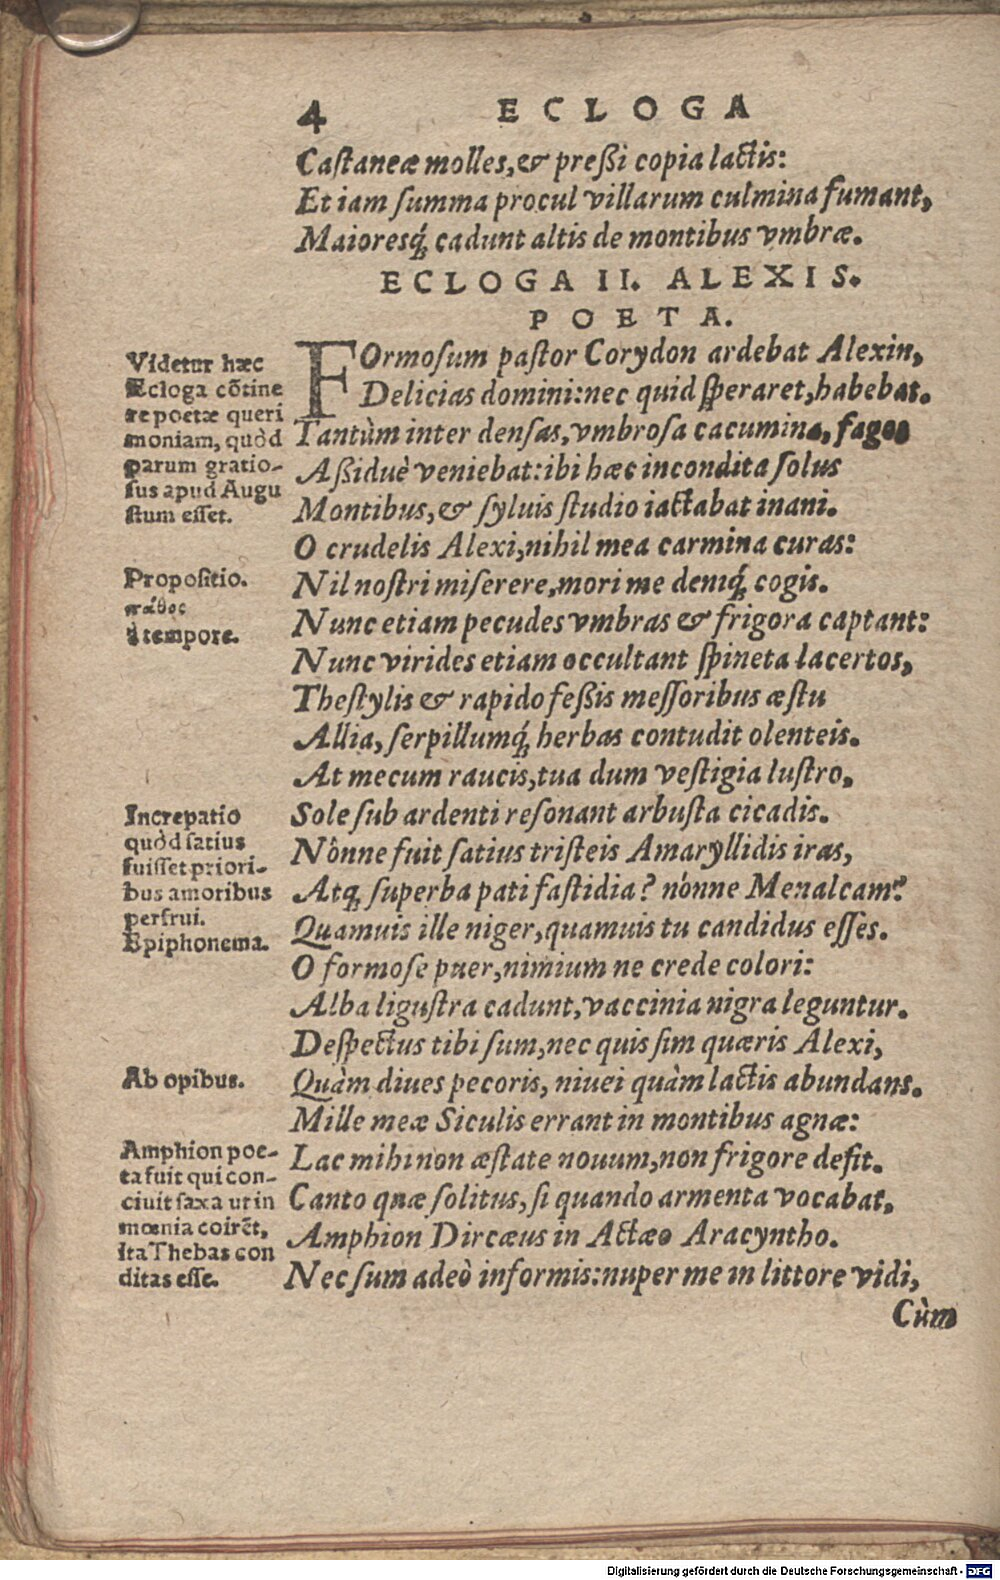 4 ECLOGA
Castaneæ molles, & preßi copia lactis:
Et iam summa procul villarum culmina fumant,
Maioresq́; cadunt altis de montibus vmbræ.
ECLOGA II. ALEXIS.
POETA.
Videtur hæc
Ecloga cōtine
re poetæ queri
moniam, quòd
parum gratio-
sus apud Augu
stum esset.
FOrmosum pastor Corydon ardebat Alexin,
Delicias domini: nec quid speraret, habebat.
Tantùm inter densas, vmbrosa cacumina, fagos
Aßiduè veniebat: ibi hæc incondita solus
Montibus, & syluis studio iactabat inani.
O crudelis Alexi, nihil mea carmina curas:
Propositio.
πάθος
à tempore.
Nil nostri miserere, mori me deniq́; cogis.
Nunc etiam pecudes vmbras & frigora captant:
Nunc virides etiam occultant spineta lacertos,
Thestylis & rapido feßis messoribus æstu
Allia, serpillumq́; herbas contudit olenteis.
At mecum raucis, tua dum vestigia lustro,
Increpatio
quòd satius
fuisset priori-
bus amoribus
perfrui.
Epiphonema.
Sole sub ardenti resonant arbusta cicadis.
Nónne fuit satius tristeis Amaryllidis iras,
Atq; superba pati fastidia? nónne Menalcam?
Quamuis ille niger, quamuis tu candidus esses.
O formose puer, nimium ne crede colori:
Alba ligustra cadunt, vaccinia nigra leguntur.
Despectus tibi sum, nec quis sim quæris Alexi,
Ab opibus.
Quàm diues pecoris, niuei quàm lactis abundans.
Mille meæ Siculis errant in montibus agnæ:
Amphion poe-
ta fuit qui con-
ciuit saxa ut in
mœnia coirēt,
ita Thebas con
ditas esse.
Lac mihi non æstate nouum, non frigore defit.
Canto quæ solitus, si quando armenta vocabat,
Amphion Dircæus in Actæo Aracyntho.
Nec sum adeò informis: nuper me in littore vidi,
Cùm
Digitalisierung gefördert durch die Deutsche Forschungsgemeinschaft - DFG